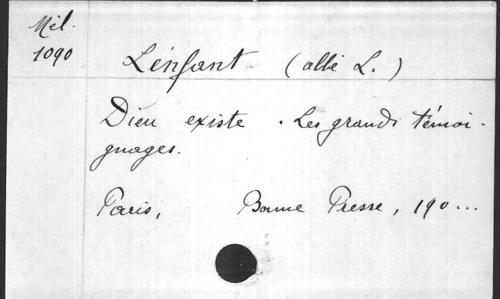 Mél.
1090
Lénfant (abbé L.)
Dieu existe. Les grands témoi-
gnages.
Paris, Bonne Presse, 190...